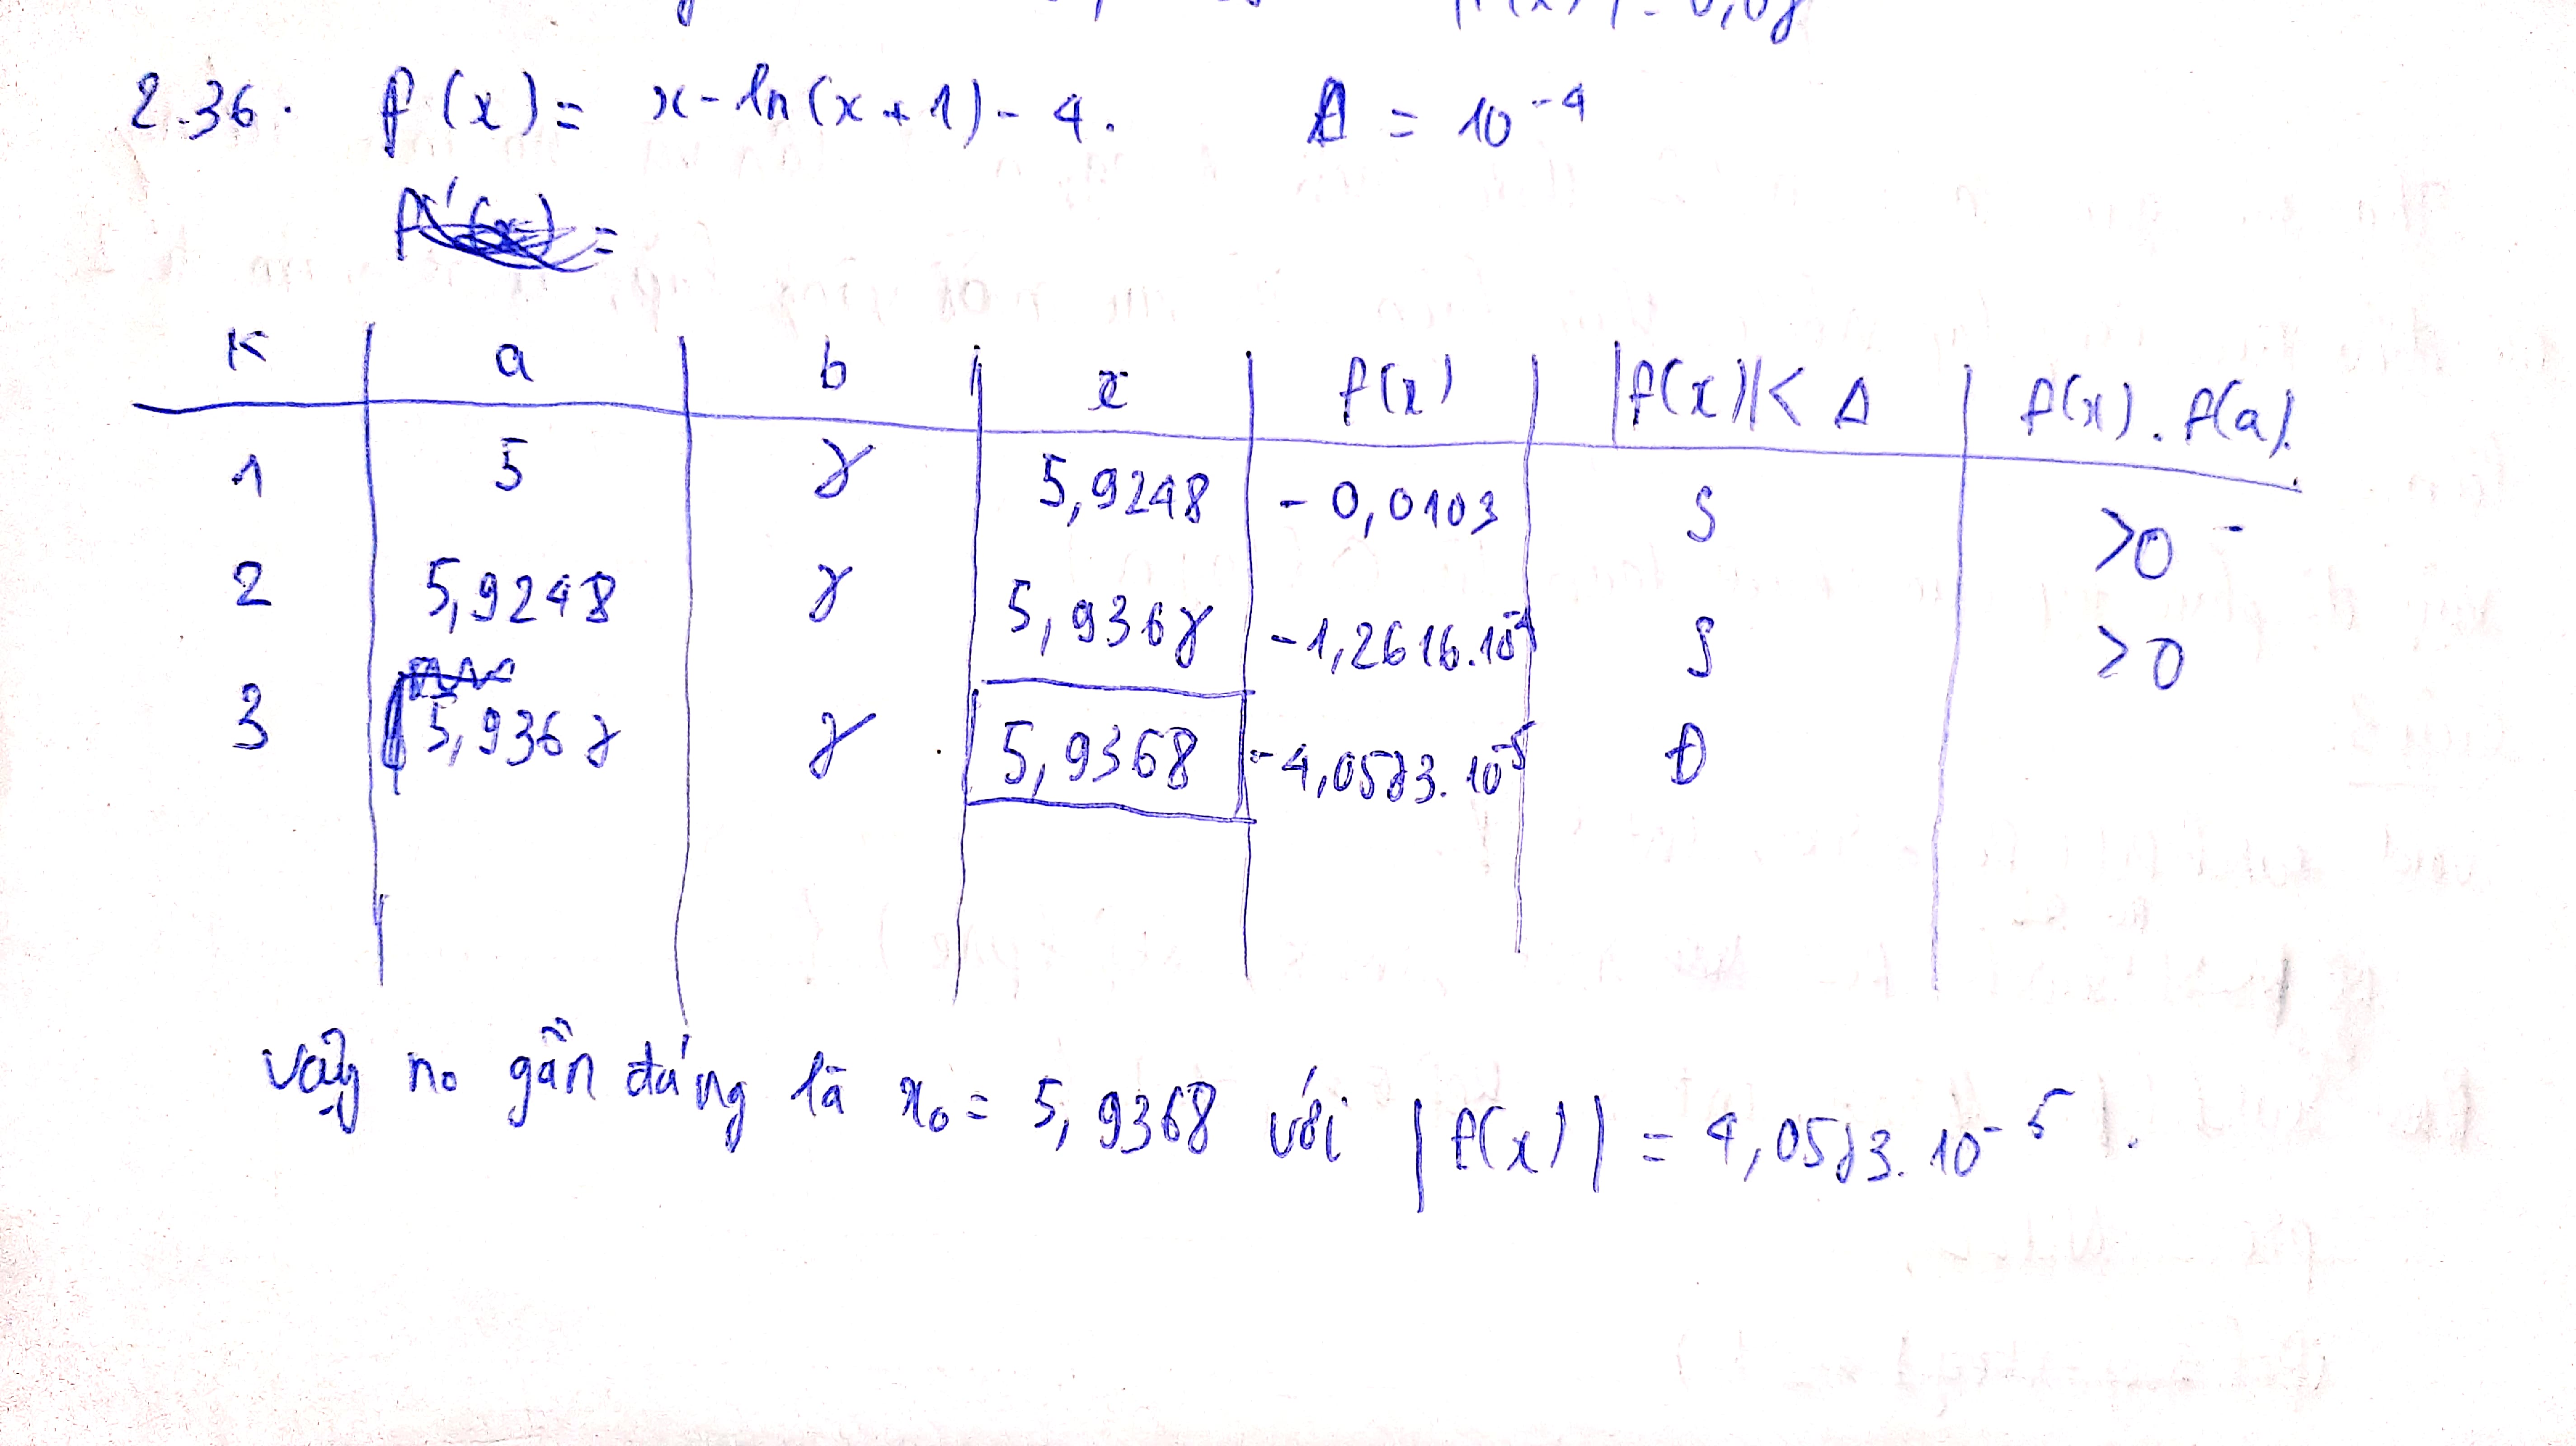 |f(x)| = 0,07
2.36. f(x) = x - ln(x+1) - 4. Δ = 10^-4
f'(x) =
K a b x f(x) |f(x)| < Δ f(x).f(a).
1 5 7 5,9248 -0,0103 S >0
2 5,9248 7 5,9367 -1,2616.10^-4 S >0
3 5,9367 7 5,9368 -4,0573.10^-5 Đ
Vậy no gần đúng là x₀ = 5,9368 với |f(x)| = 4,0573.10^-5.